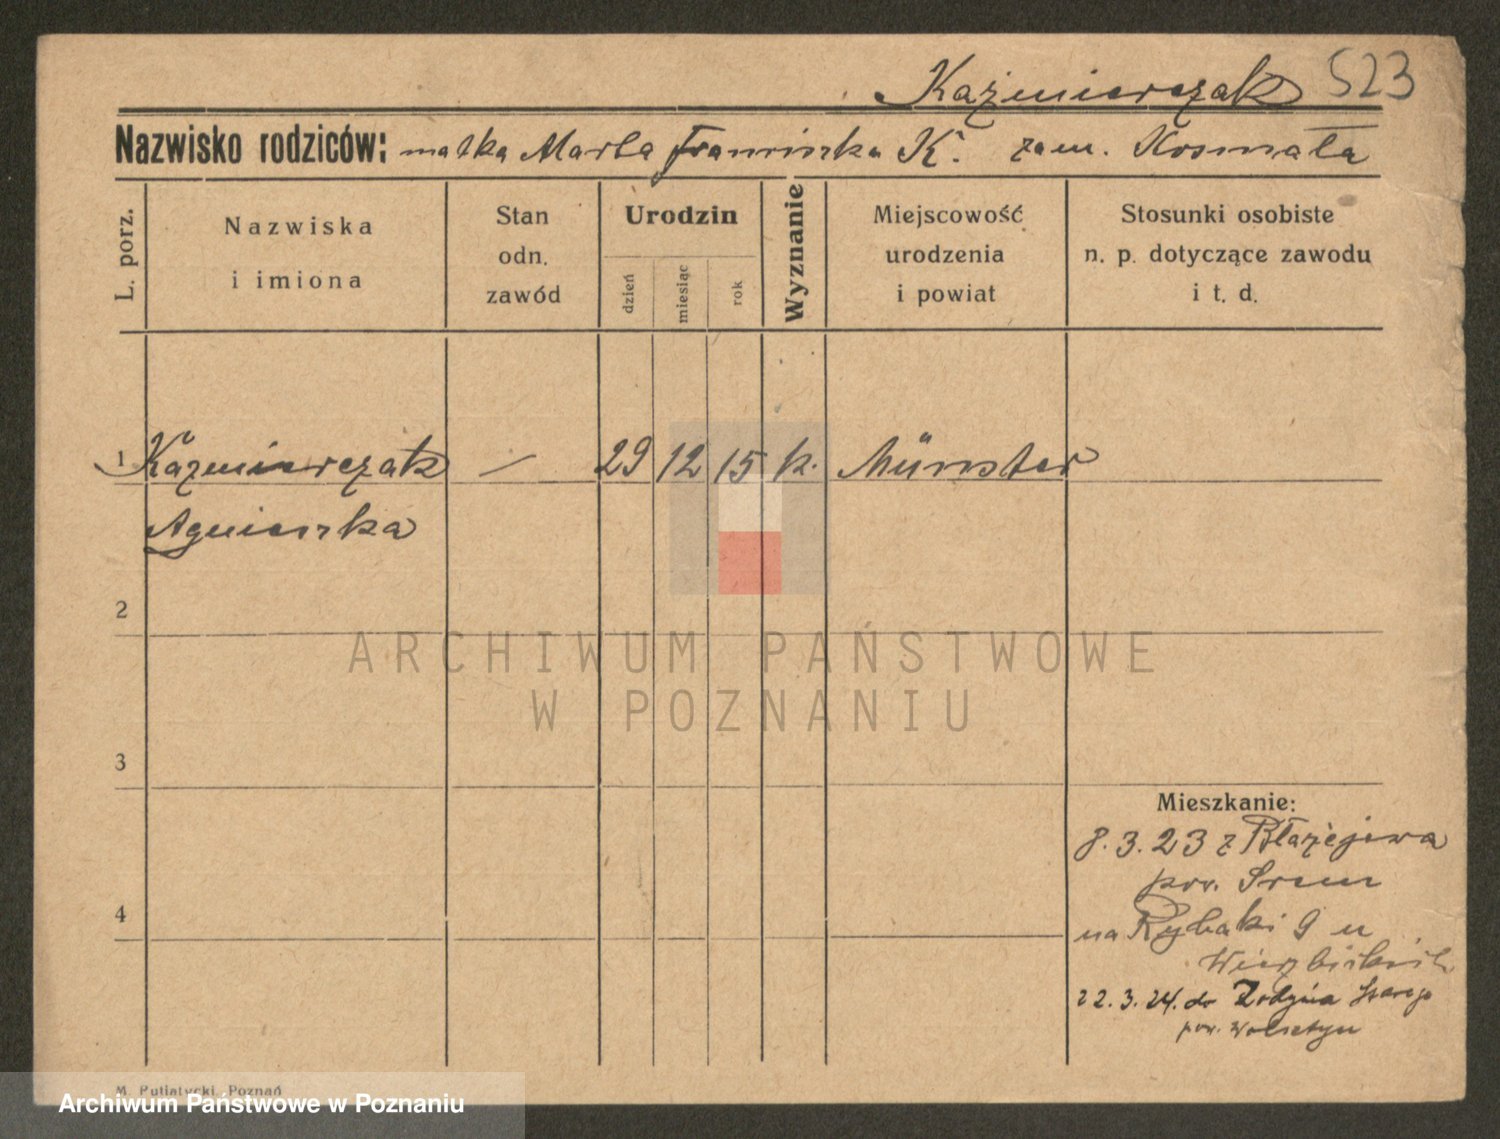 Kaźmierczak 523
Nazwisko rodziców: matka Marta Franciszka K. zam. Kosmala
L. porz.
Nazwiska
i imiona
Stan
odn.
zawód
Urodzin
dzień
miesiąc
rok
Wyznanie
Miejscowość
urodzenia
i powiat
Stosunki osobiste
n. p. dotyczące zawodu
i t. d.
1 Kaźmierczak — 29 12 15 k. Münster
Agnieszka
2
3
4
Mieszkanie:
8.3.23 z Błażejewa
pow. Śrem
na Rybaki 9 u
Wierzbickich
22.3.24. do Zodynia Starego
pow. Wolsztyn
M. Putiatycki, Poznań
ARCHIWUM PAŃSTWOWE
W POZNANIU
Archiwum Państwowe w Poznaniu